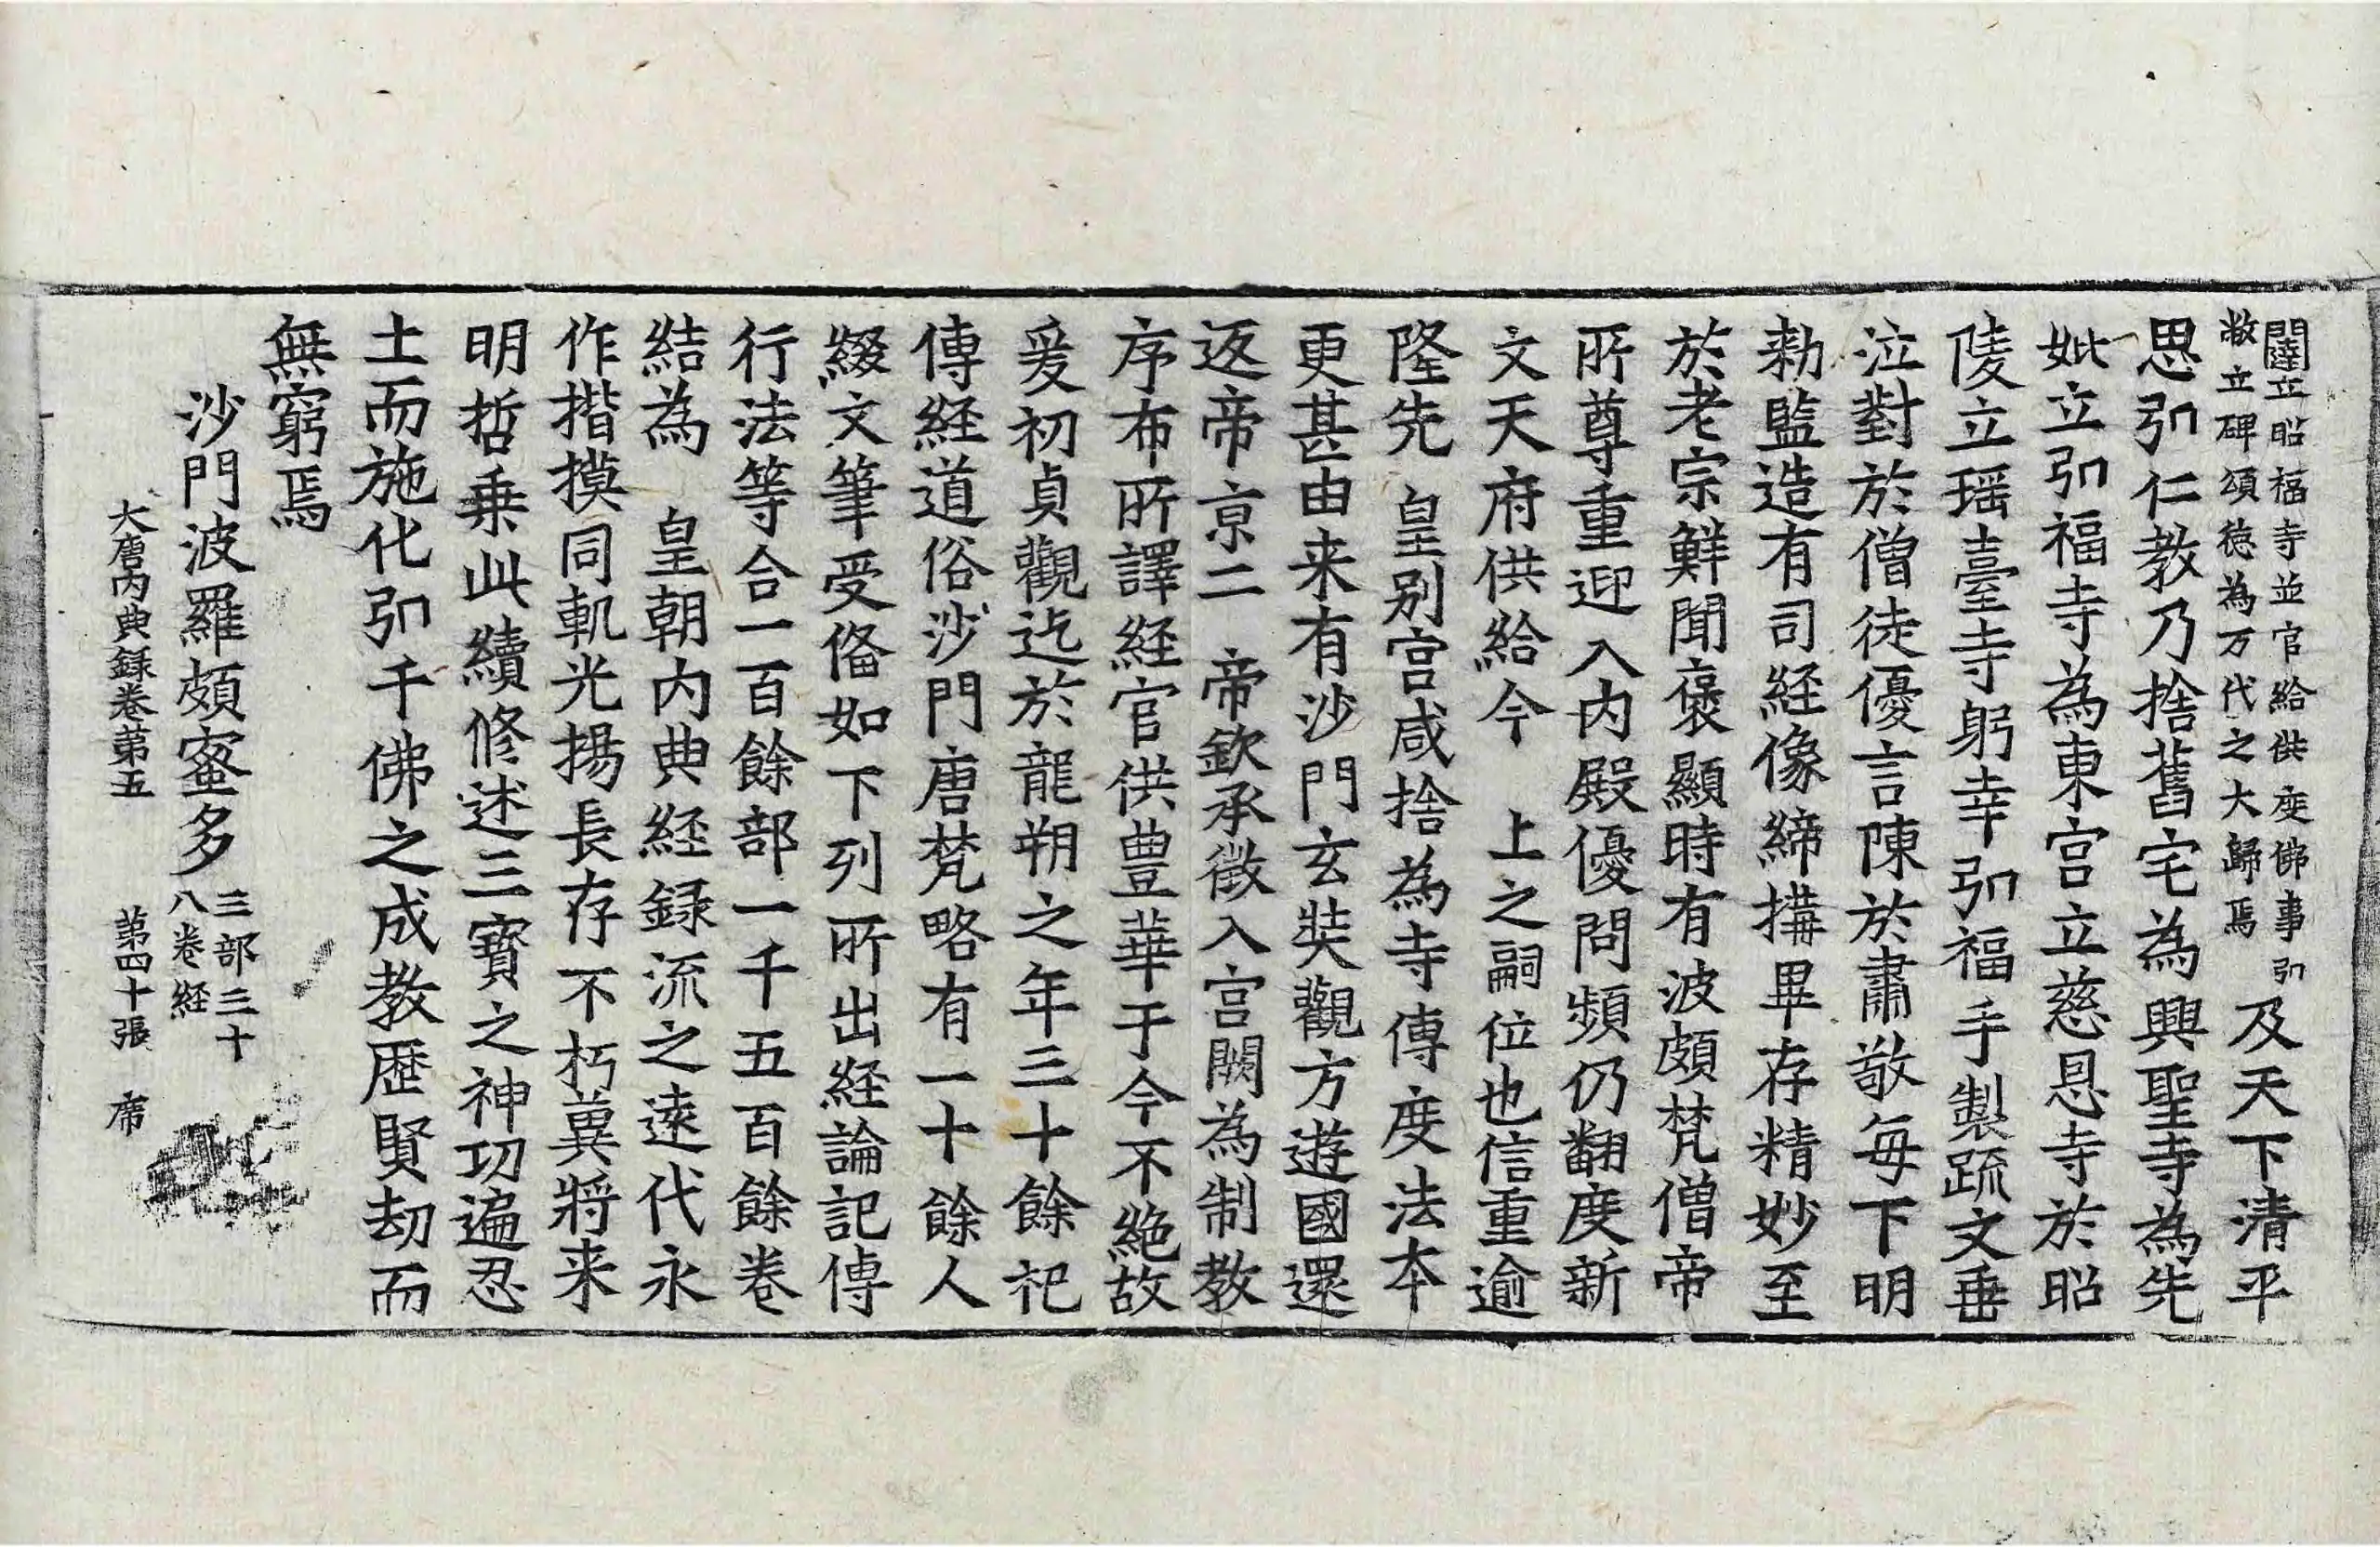 闥立昭福寺並官給供度佛事引
敞立碑頌徳為万代之大歸焉
及天下清平
思引仁教乃捨舊宅為興聖寺為先
妣立引福寺為東宮立慈恩寺於昭
陵立瑶臺寺躬幸引福手製疏文垂
泣對於僧徒優言陳於肅敬每下明
勑監造有司経像締搆畢存精妙至
於老宗鮮聞褒顯時有波頗梵僧帝
所尊重迎入内殿優問頻仍翻度新
文天府供給今　上之嗣位也信重逾
隆先　皇别宫咸捨為寺傳度法本
更甚由来有沙門玄奘觀方遊國還
返帝京二　帝欽承徵入宫闕為制教
序布所譯経官供豊華于今不絶故
爰初貞觀迄於龍朔之年三十餘祀
傳経道俗沙門唐梵略有一十餘人
綴文筆受俻如下列所出経論記傳
行法等合一百餘部一千五百餘卷
結為　皇朝内典経録流之逺代永
作揩摸同軌光揚長存不朽兾將来
明哲乗此續修述三寶之神功遍忍
土而施化引千佛之成教歴賢劫而
無窮焉
沙門波羅頗蜜多
三部三十
八卷経
大唐内典録卷苐五　苐四十張　席